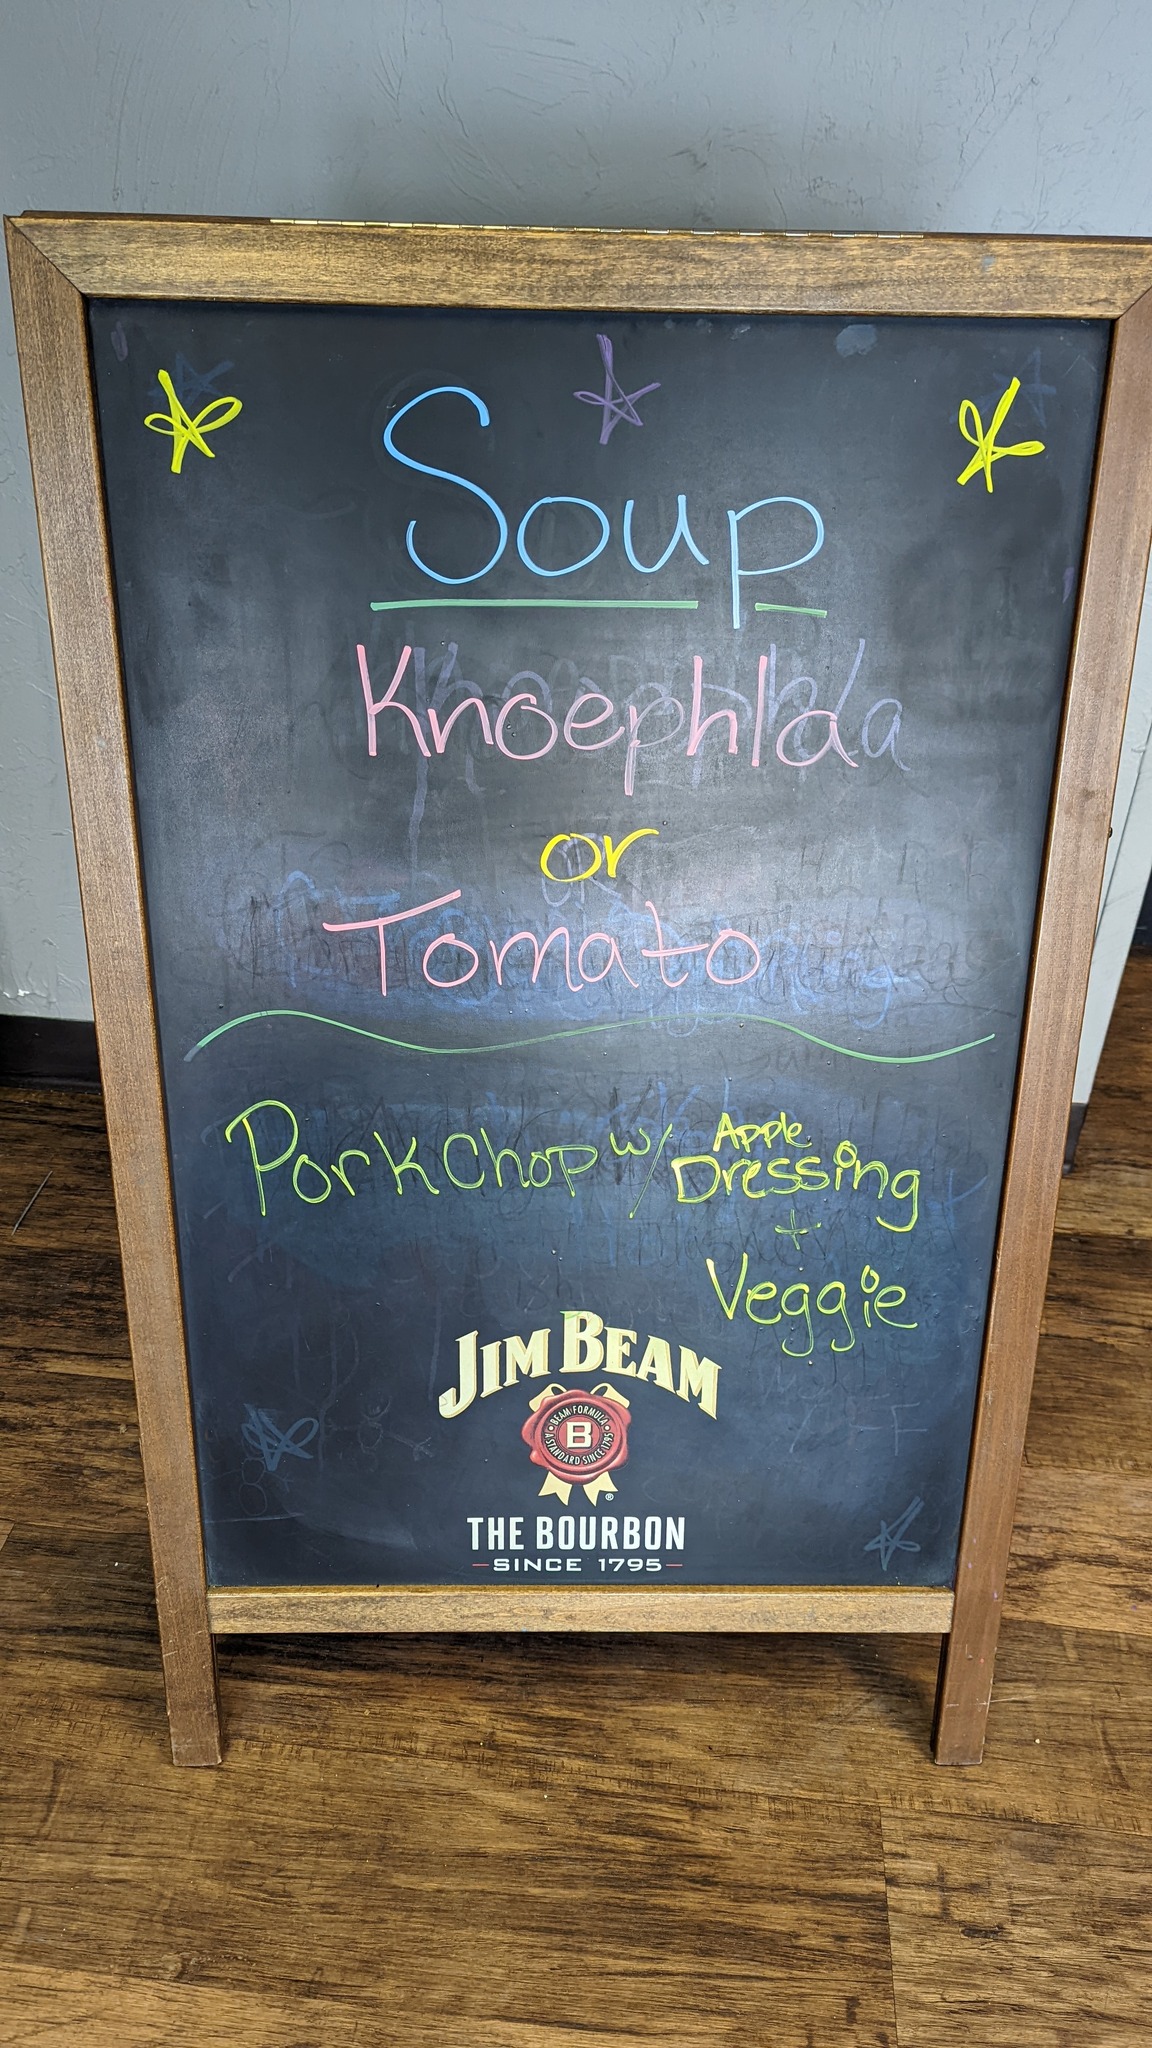 Soup
Knoephla
or
Tomato
Pork Chop w/ Apple Dressing
+
Veggie
JIM BEAM
BEAM FORMULA
B
A STANDARD SINCE 1795
®
THE BOURBON
SINCE 1795